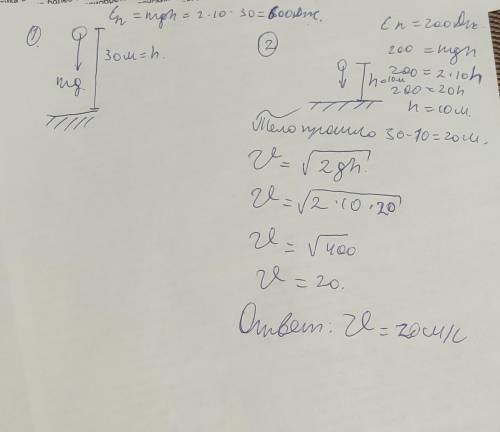 ① Eп = mgh = 2·10·30 = 600Дж.
30м = h.
mg
② Eп = 200Дж
200 = mgh
200 = 2·10h
200 = 20h
h = 10м.
h = 10м
Тело прошло 30-10 = 20м.
V = √2gh.
V = √2·10·20
V = √400
V = 20.
Ответ: V = 20м/с